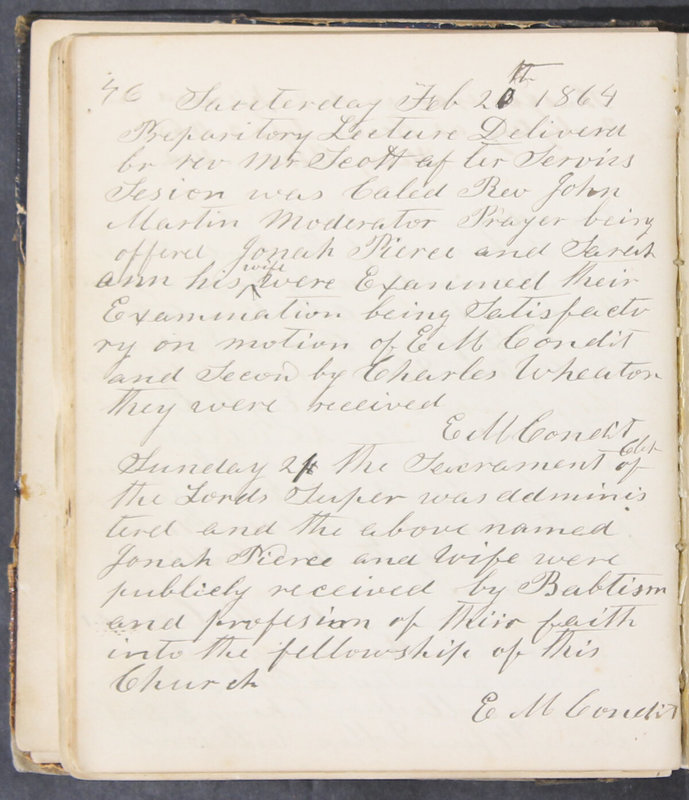 46 Santerday Feb 20th 1864
Preparitory Lecture Deliverd
by rev Mr Scott after Servis
Sesion was Caled Rev John
Martin Moderator Prayer being
offerd Jonah Pierce and Sarah
ann his wife were Examined their
Examination being Satisfacto
ry on motion of E M Condit
and Secon by Charles Wheaton
they were received
E M Condit
Clk
Sunday 21 the Sacrament of
the Lords Super was adminis
terd and the above named
Jonah Pierce and Wife were
publicly received by Babtism
and profesion of thiir faith
into the fellowship of this
Church
E M Condit